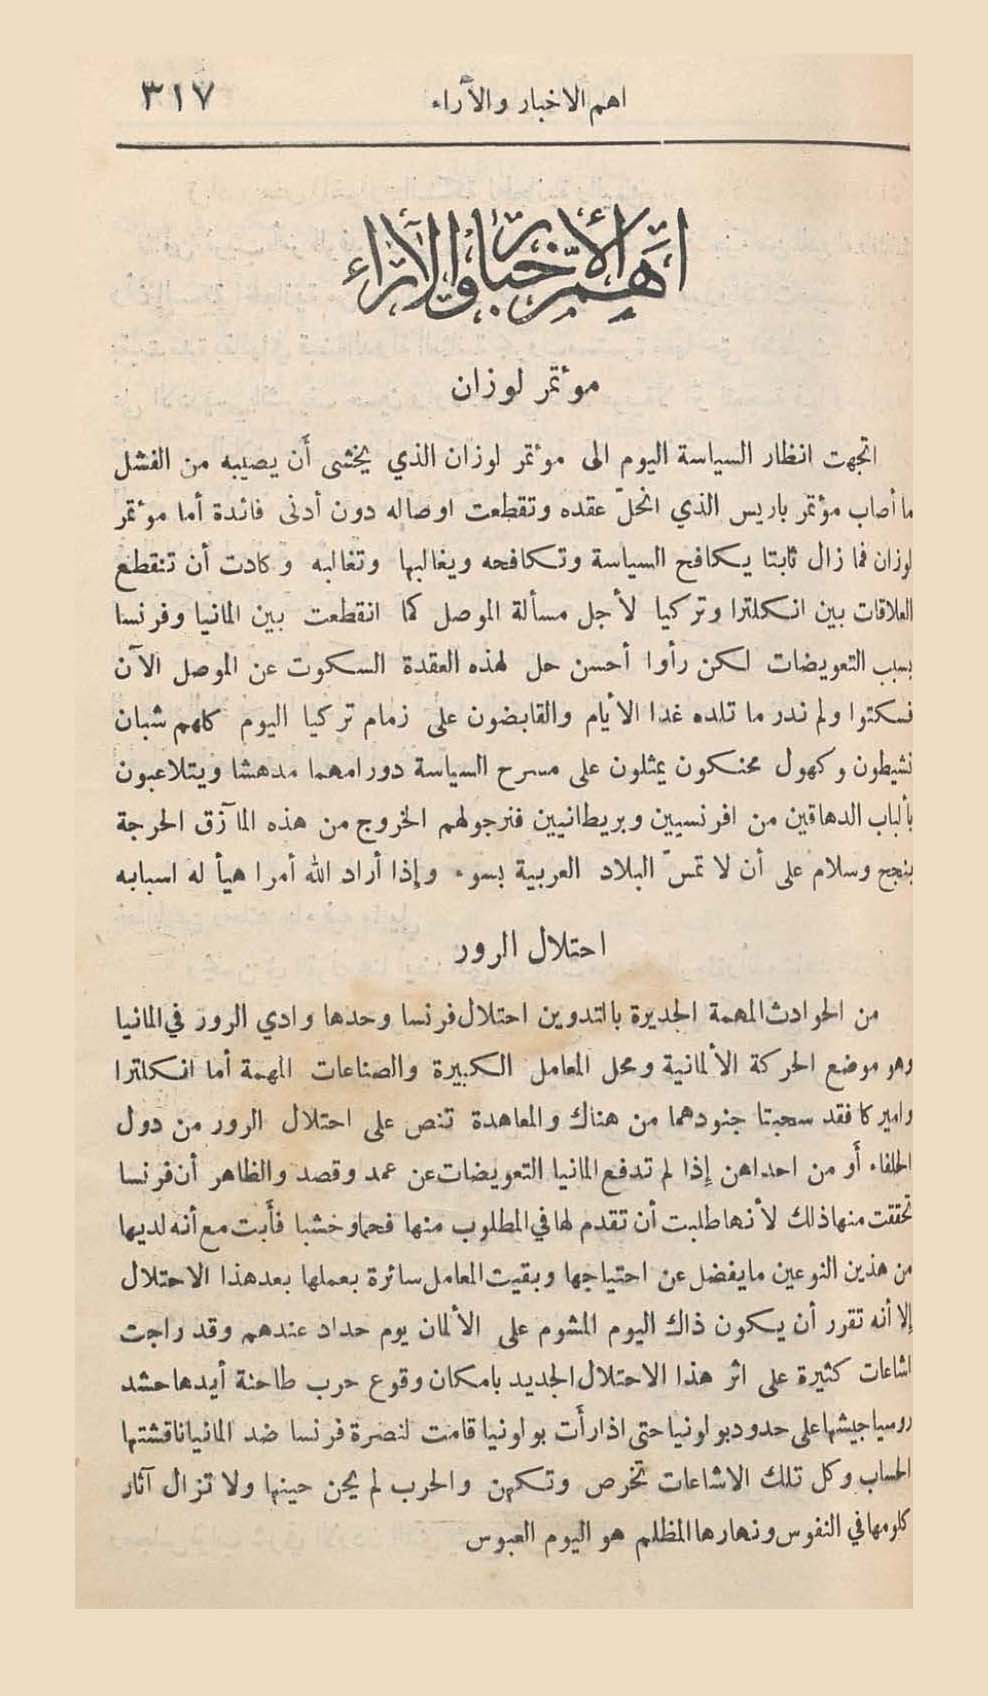 اهم الاخبار والآراء
٣١٧
اهم الأخبار والآراء
مؤتمر لوزان
اتجهت انظار السياسة اليوم الى مؤتمر لوزان الذي يخشى أن يصيبه من الفشل
ما أصاب مؤتمر باريس الذي انحلّ عقده وتقطعت اوصاله دون أدنى فائدة أما مؤتمر
لوزان فما زال ثابتا يكافح السياسة وتكافحه ويغالبها وتغالبه وكادت أن تنقطع
العلاقات بين انكلترا وتركيا لأجل مسألة الموصل كما انقطعت بين المانيا وفرنسا
بسبب التعويضات لكن رأوا أحسن حل لهذه العقدة السكوت عن الموصل الآن
فسكتوا ولم ندر ما تلده غدا الأيام والقابضون على زمام تركيا اليوم كلهم شبان
نشيطون وكهول محنكون يمثلون على مسرح السياسة دورا مهما مدهشا ويتلاعبون
بألباب الدهاقين من افرنسيين وبريطانيين فنرجو لهم الخروج من هذه المآزق الحرجة
بنجح وسلام على أن لا تمسّ البلاد العربية بسوء وإذا أراد الله أمرا هيأ له اسبابه
احتلال الرور
من الحوادث المهمة الجديرة بالتدوين احتلال فرنسا وحدها وادي الرور في المانيا
وهو موضع الحركة الألمانية ومحل المعامل الكبيرة والصناعات المهمة أما انكلترا
واميركا فقد سحبتا جنودهما من هناك والمعاهدة تنص على احتلال الرور من دول
الحلفاء أو من احداهن إذا لم تدفع المانيا التعويضات عن عمد وقصد والظاهر أن فرنسا
تحققت منها ذلك لأنها طلبت أن تقدم لها في المطلوب منها فحما وخشبا فأبت مع أنه لديها
من هذين النوعين ما يفضل عن احتياجها وبقيت المعامل سائرة بعملها بعد هذا الاحتلال
إلا أنه تقرر أن يكون ذاك اليوم المشوم على الألمان يوم حداد عندهم وقد راجت
اشاعات كثيرة على اثر هذا الاحتلال الجديد بامكان وقوع حرب طاحنة أيدها حشد
روسيا جيشها على حدود بولونيا حتى اذا رأت بولونيا قامت لنصرة فرنسا ضد المانيا ناقشتها
الحساب وكل تلك الاشاعات تخرص وتكهن والحرب لم يحن حينها ولا تزال آثار
كلومها في النفوس ونهارها المظلم هو اليوم العبوس